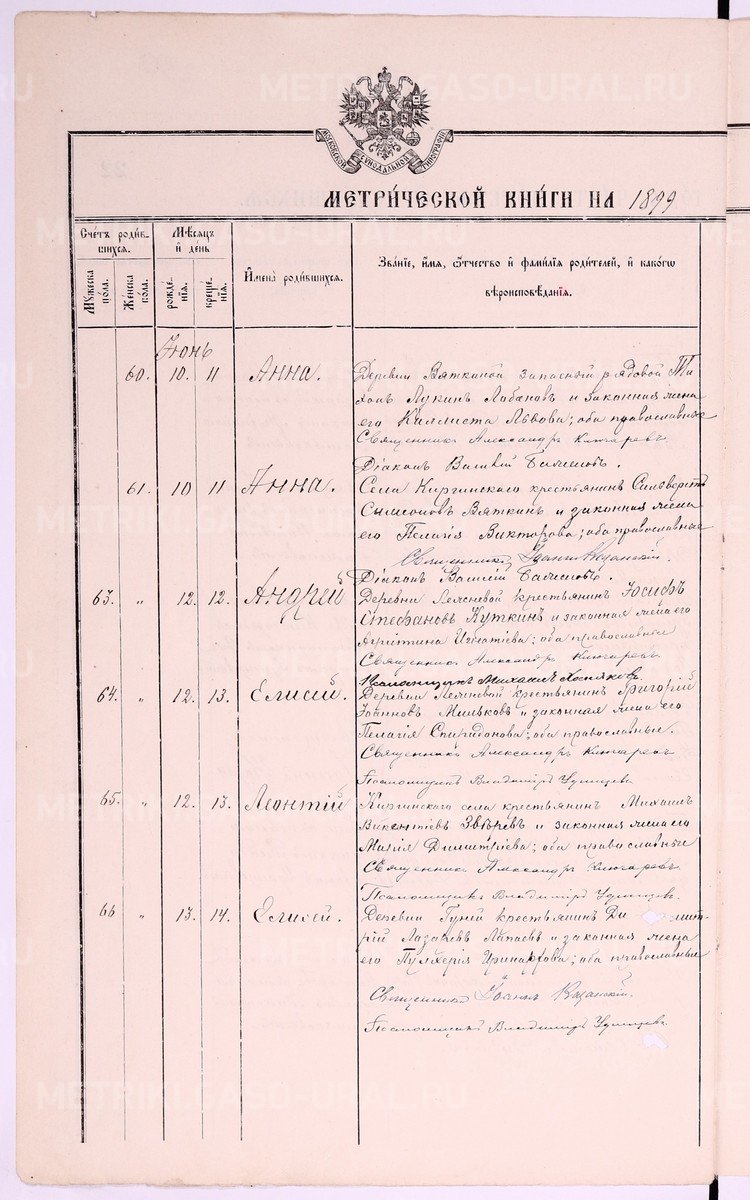 METRIKI.GASO-URAL.RU
МОСКОВСКОЙ СѴНОДАЛЬНОЙ ТИПОГРАФІИ
МЕТРИ́ЧЕСКОЙ КНИ́ГИ НА 1899
Счетъ роди́в-
шихся.
Мѣсяцъ
и҆ день
И҆мена̀ роди́вшихся.
Зва́ніе, и҆́мя, ѻ҆́тчество и҆ фами́лія роди́телей, и҆ како́гѡ
вѣроисповѣ́данія.
Мужеска
пола.
Женска
пола.
рожде-
нія.
креще-
нія.
Іюнь
60. 10. 11 Анна. Деревни Вяткиной запасный рядовой Ти-
хонъ Лукинъ Лобановъ и законная жена
его Каллиста Львова; оба православные
Священникъ Александръ Ключаревъ
Діаконъ Василій
61. 10 11 Анна. Села Киргинскаго крестьянинъ Сильверстъ
Сѵмеоновъ Вяткинъ и законная жена
его Пелагія Викторова; оба православные
Священникъ Іоаннъ Казанскій.
Діаконъ Василій
63. " 12. 12. Андрей Деревни крестьянинъ Іосифъ
Стефановъ Куткинъ и законная жена его
Агрипина Игнатіева; оба православные
Священникъ Александръ Ключаревъ
Псаломщикъ Михаилъ Хосяковъ
64. " 12. 13. Елисей. Деревни крестьянинъ Григорій
Іоанновъ Мильковъ и законная жена его
Пелагія Спиридонова; оба православные.
Священникъ Александръ Ключаревъ
Псаломщикъ Владиміръ
65. " 12. 13. Леонтій Киргинскаго села крестьянинъ Михаилъ
Викентіевъ Звѣревъ и законная жена его
Марія Димитріева; оба православные
Священникъ Александръ Ключаревъ
Псаломщикъ Владиміръ
66 " 13. 14. Елисей. Деревни Гуней крестьянинъ Ди мит-
рій Лазаревъ Лапаевъ и законная жена
его Пулхерія Иринархова; оба православные
Священникъ Іоаннъ Казанскій.
Псаломщикъ Владиміръ
METRIKI.GASO-URAL.RU